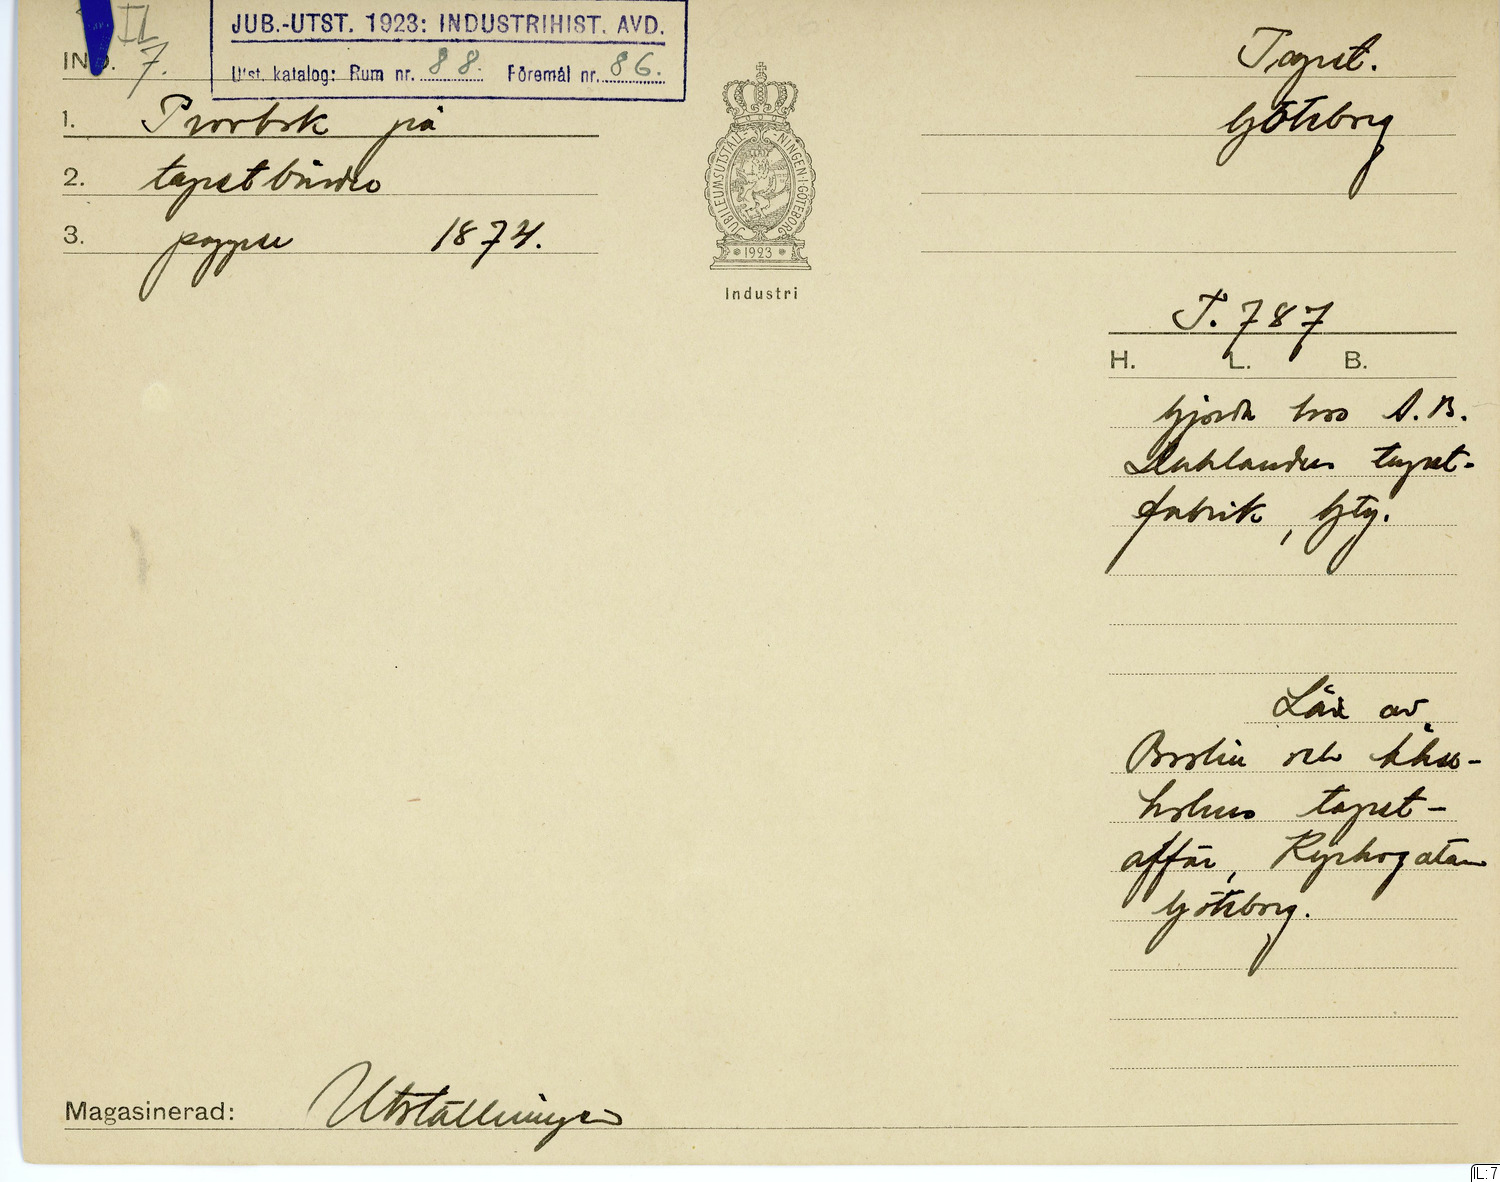 IL
JUB.-UTST. 1923: INDUSTRIHIST. AVD.
IND. 7.
Utst. katalog: Rum nr. 88. Föremål nr. 86.
Tapet.
Göteborg
1. Provbok på
2. tapetbårder
3. papper 1874.
JUBILEUMSUTSTÄLLNINGEN I GÖTEBORG
1923
Industri
T. 787
H. L. B.
Gjorda hos A.B.
Dahlanders tapet-
fabrik, Gbg.
Lån av
och
holms tapet-
affär, Kyrkogatan
Göteborg.
Magasinerad: Utställningen
IL:7